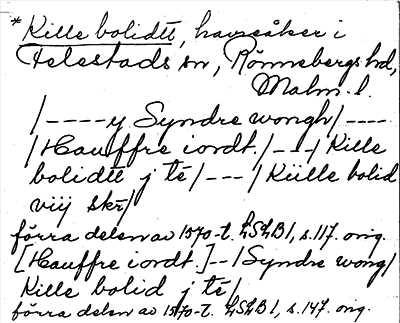 *Kille bolidtt, havreåker i
Felestads sn, Rönnebergs hd,
Malm. l.
/----y Syndre wongh/----
/Hauffre iordt./---/Kille
bolidtt j tē/---/Kiille bolid
viij skr/
förra delen av 1570-t. LSLB 1, s. 117. orig.
[Hauffre iordt.]--/Syndre wong/
Kille bolid j tē/
förra delen av 1570-t. LSLB 1, s. 147. orig.